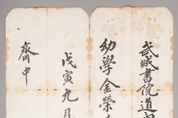 武城書院道
幼學金榮
戊寅九月
齊中